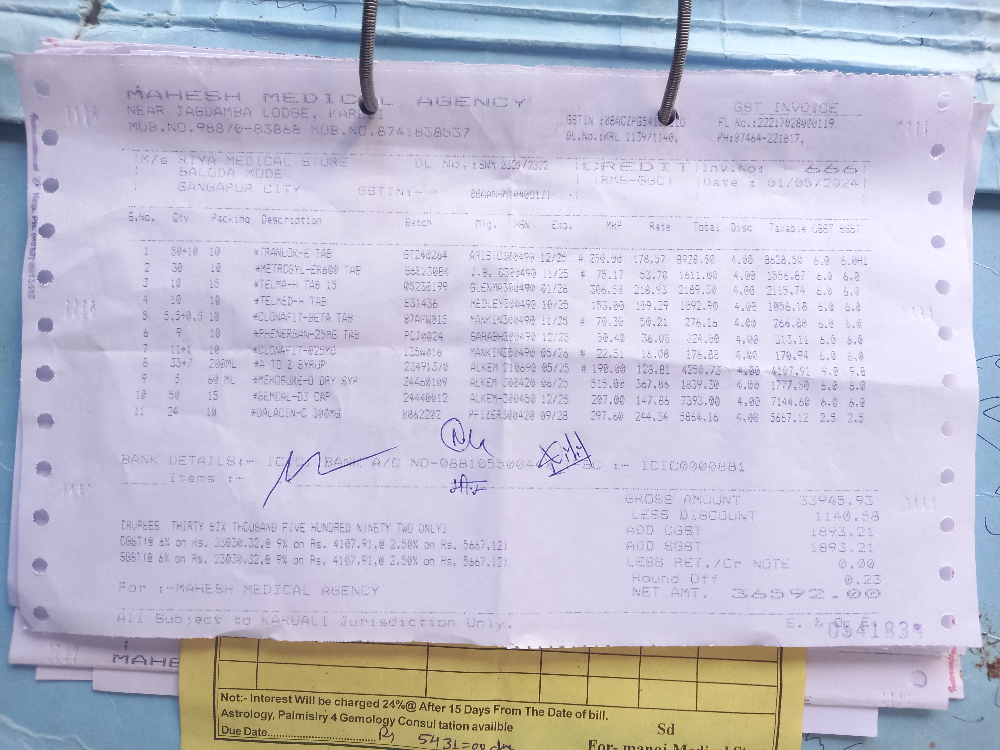 MAHESH MEDICAL AGENCY
NEAR JAGDAMBA LODGE,
MOB.NO.96870-83868 MOB.NO.8741838537
GST INVOICE
FL No.:22217028000119
DL.No.:KRL 1139/1140,
PH:07464-221817,
M/s RIYA MEDICAL STORE
SALODA MODE
GANGAPUR CITY GSTIN:-
DL No.:SWM 2321/2322
CREDIT
Inv.No: 666
Date : 01/05/2024
S.No. Qty Packing Description Batch Mfg. HSN Exp. MRP Rate Total Disc Taxable CGST SGST
1 50+10 10 *TRANLOK-E TAB GT240264 12/25 # 250.00 178.57 8928.50 4.00 6.0
2 30 10 *METROGYL-ER600 TAB 11/25 # 75.17 53.70 1611.00 4.00 6.0 6.0
3 10 15 *TELMA-H TAB 15 05230199 01/26 306.50 218.93 2189.30 4.00 2115.74 6.0 6.0
4 10 10 *TELMED-H TAB E31436 10/25 153.00 109.29 1092.90 4.00 1056.18 6.0 6.0
5 5.5+0.5 10 *CLONAFIT-BETA TAB 11/25 # 70.30 50.21 276.16 4.00 6.0 6.0
6 9 10 *PHENERGAN-25MG TAB PCJ0024 12/25 50.40 36.00 324.00 4.00 313.11 6.0 6.0
7 11+1 10 05/26 # 22.51 16.08 176.88 4.00 170.94 6.0 6.0
8 33+7 200ML *A TO Z SYRUP ALKEM 05/25 # 190.00 128.81 4250.73 4.00 4107.91 9.0 9.0
9 5 60 ML DRY SYP 24460109 ALKEM 300420 06/25 515.00 367.86 1839.30 4.00 1777.50 6.0 6.0
10 50 15 *GEMCAL-D3 CAP 24440012 ALKEM-300450 12/25 207.00 147.86 7393.00 4.00 7144.60 6.0 6.0
11 24 10 *DALACIN-C 300MG 8862202 PFIZER300420 09/28 297.60 244.34 5864.16 4.00 5667.12 2.5 2.5
BANK DETAILS:- BANK A/C NO- :- ICIC0000881
Items :-
GROSS AMOUNT 33945.93
LESS DISCOUNT 1140.58
ADD CGST 1893.21
ADD SGST 1893.21
LESS RET./Cr NOTE 0.00
Round Off 0.23
NET AMT. 36592.00
(RUPEES THIRTY SIX THOUSAND FIVE HUNDRED NINETY TWO ONLY)
CGST(@ 6% on Rs. 23030.32,@ 9% on Rs. 4107.91,@ 2.50% on Rs. 5667.12)
SGST(@ 6% on Rs. 23030.32,@ 9% on Rs. 4107.91,@ 2.50% on Rs. 5667.12)
For :-MAHESH MEDICAL AGENCY
All Subject to KARUALI Jurisdiction Only.
E. & O. E.
MAHE
Not:- Interest Will be charged 24%@ After 15 Days From The Date of bill.
Astrology, Palmisiry 4 Gemology Consul tation availble
Due Date
Rs 5431=00
Sd
For- manoj Medical